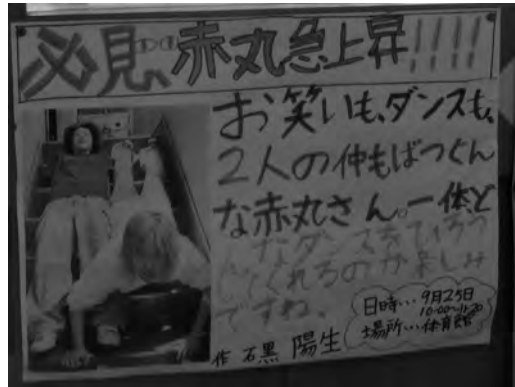 必見、赤丸急上昇!!!!
お笑いも、ダンスも、
2人の仲もばつぐん
な赤丸さん。一体、ど
んなダンスをひろう
してくれるのか楽しみ
ですね。
日時…9月25日
10:00~11:20
場所…体育館
作 石黒 陽生